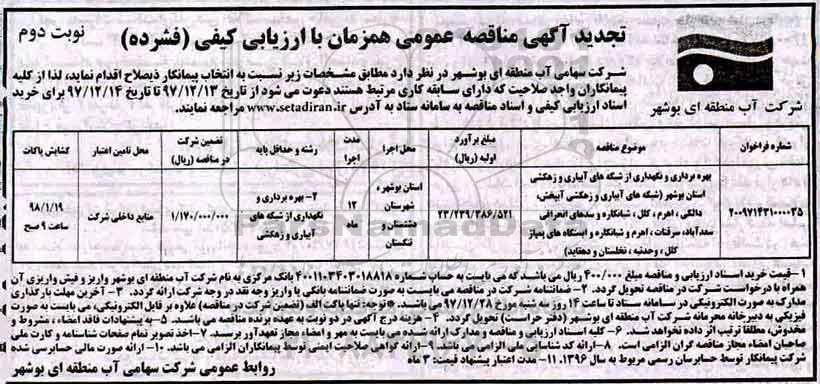 تجدید آگهی مناقصه عمومی همزمان با ارزیابی کیفی (فشرده)
نوبت دوم
شرکت سهامی آب منطقه ای بوشهر در نظر دارد مطابق مشخصات زیر نسبت به انتخاب پیمانکار ذیصلاح اقدام نماید، لذا از کلیه
پیمانکاران واجد صلاحیت که دارای سابقه کاری مرتبط هستند دعوت می شود از تاریخ ۹۷/۱۲/۱۳ تا تاریخ ۹۷/۱۲/۱۴ برای خرید
اسناد ارزیابی کیفی و اسناد مناقصه به سامانه ستاد به آدرس www.setadiran.ir مراجعه نمایند.
شرکت آب منطقه ای بوشهر
شماره فراخوان
موضوع مناقصه
مبلغ برآورد
اولیه (ریال)
محل اجرا
مدت
اجرا
رشته و حداقل پایه
تضمین شرکت
در مناقصه (ریال)
محل تامین اعتبار
گشایش پاکات
۲۰۰۹۷۱۴۳۱۰۰۰۰۳۵
بهره برداری و نگهداری از شبکه های آبیاری و زهکشی
استان بوشهر (شبکه های آبیاری و زهکشی آبپخش،
دالکی، اهرم، کلل، شبانکاره و سدهای انحرافی
سعدآباد، سرقنات، اهرم و شبانکاره و ایستگاه های پمپاژ
کلل، وحدتیه، نخلستان و دهقاید)
۲۳/۲۳۹/۳۸۶/۵۲۱
استان بوشهر،
شهرستان
دشتستان و
تنگستان
۱۲
ماه
۲- بهره برداری و
نگهداری از شبکه های
آبیاری و زهکشی
۱/۱۷۰/۰۰۰/۰۰۰
منابع داخلی شرکت
۹۸/۱/۱۹
ساعت ۹ صبح
۱-قیمت خرید اسناد ارزیابی و مناقصه مبلغ ۴۰۰/۰۰۰ ریال می باشد که می بایست به حساب شماره ۴۰۰۱۱۰۳۴۰۳۰۱۸۸۱۸ بانک مرکزی به نام شرکت آب منطقه ای بوشهر واریز و فیش واریزی آن
همراه با درخواست شرکت در مناقصه تحویل گردد. ۲- ضمانتنامه شرکت در مناقصه می بایست به صورت ضمانتنامه بانکی یا واریز وجه نقد در وجه شرکت ارائه گردد. ۳- آخرین مهلت بارگذاری
مدارک به صورت الکترونیکی در سامانه ستاد تا ساعت ۱۴ روز سه شنبه مورخ ۹۷/۱۲/۲۸ می باشد. *توجه: تنها پاکت الف (تضمین شرکت در مناقصه) علاوه بر فایل الکترونیکی، می بایستی به صورت
فیزیکی به دبیرخانه محرمانه شرکت آب منطقه ای بوشهر (دفتر حراست) تحویل گردد. ۴- هزینه درج آگهی در دو نوبت به عهده برنده مناقصه می باشد. ۵-به پیشنهادات فاقد امضاء، مشروط و
مخدوش، مطلقا ترتیب اثر داده نخواهد شد. ۶- کلیه اسناد ارزیابی و مناقصه و مدارک ارائه شده می بایست به مهر و امضاء مجاز تعهدآور برسد. ۷-اخذ تصویر تمام صفحات شناسنامه و کارت ملی
صاحبان امضاء مجاز مناقصه گران الزامی است. ۸-ارائه کد شناسایی ملی الزامی می باشد. ۹-ارائه گواهی صلاحیت ایمنی توسط پیمانکاران الزامی می باشد. ۱۰- ارائه صورت مالی حسابرسی شده
شرکت پیمانکار توسط حسابرسان رسمی مربوط به سال ۱۳۹۶. ۱۱- مدت اعتبار پیشنهاد قیمت: ۳ ماه
روابط عمومی شرکت سهامی آب منطقه ای بوشهر